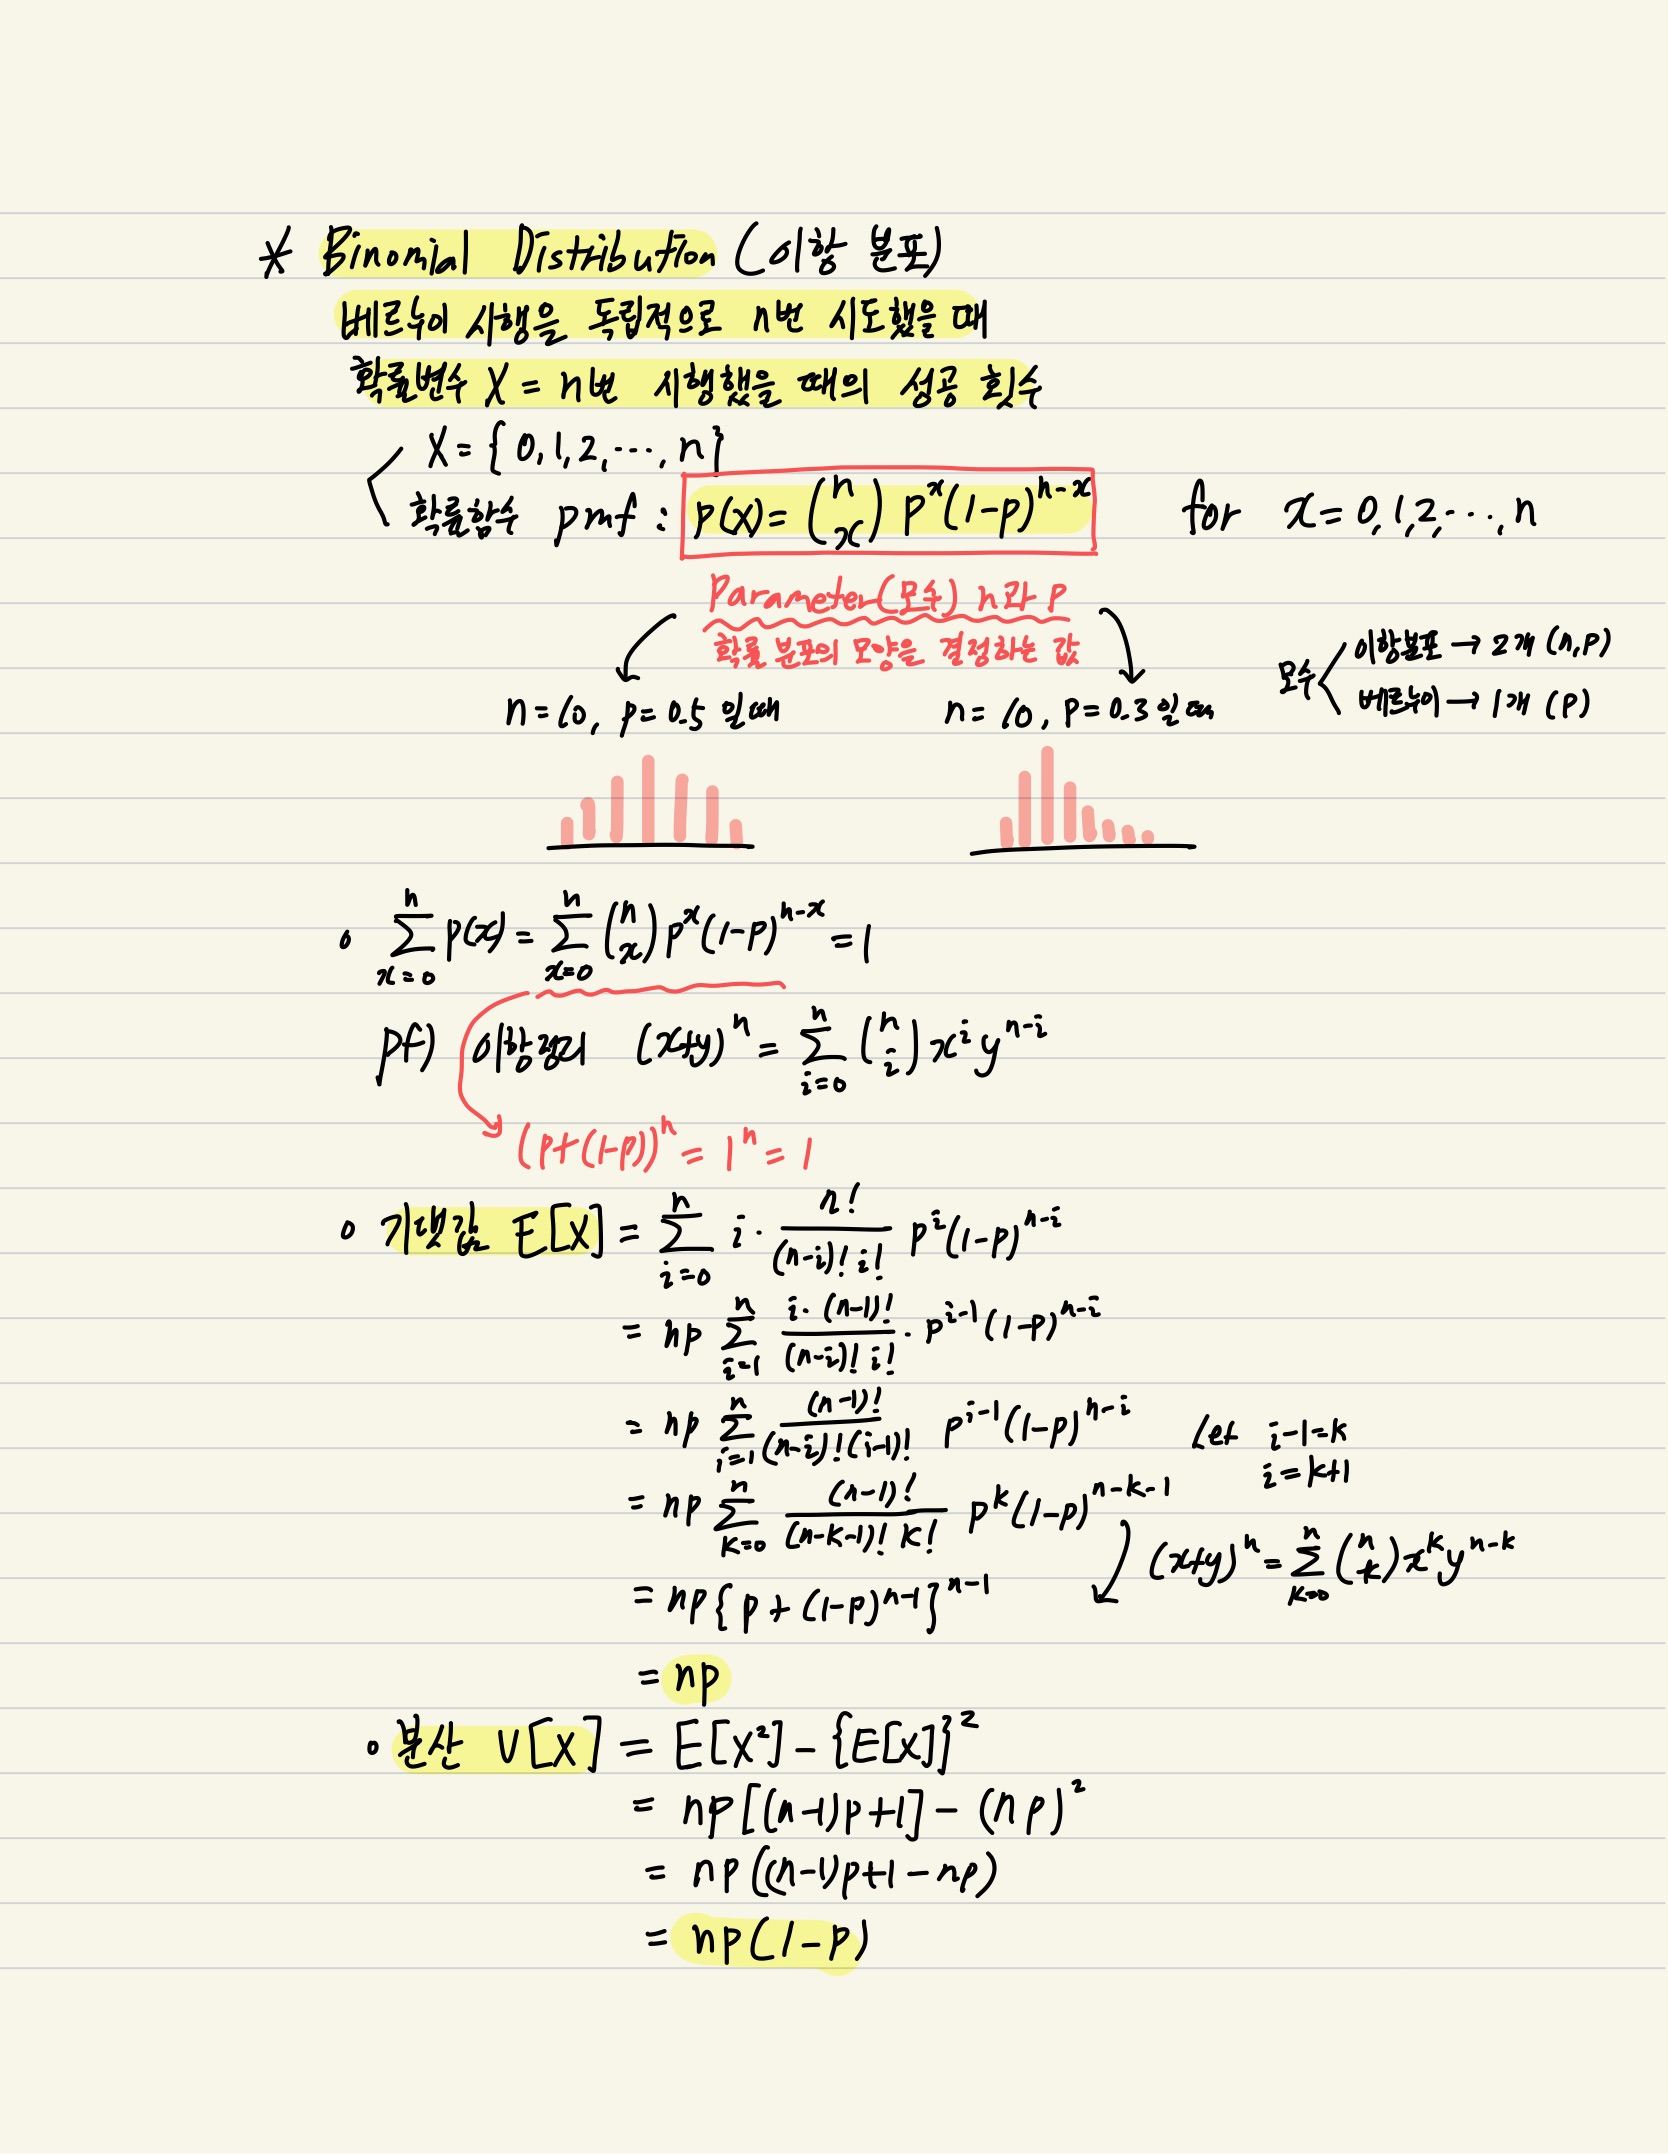 * Binomial Distribution (이항 분포)
베르누이 시행을 독립적으로 n번 시도했을 때
확률변수 X = n번 시행했을 때의 성공 횟수
X = { 0, 1, 2, ⋯, n }
확률함수 pmf : p(x) = (n x) p^x (1-p)^{n-x} for x = 0, 1, 2, ⋯, n
Parameter(모수) n과 p
확률 분포의 모양을 결정하는 값
모수 < 이항분포 → 2개 (n, p)
베르누이 → 1개 (p)
n = 10, p = 0.5 일 때 n = 10, p = 0.3 일 때
∘ ∑_{x=0}^{n} p(x) = ∑_{x=0}^{n} (n x) p^x (1-p)^{n-x} = 1
pf) 이항정리 (x+y)^n = ∑_{i=0}^{n} (n i) x^i y^{n-i}
(p+(1-p))^n = 1^n = 1
∘ 기댓값 E[X] = ∑_{i=0}^{n} i · n! / (n-i)! i! p^i (1-p)^{n-i}
= np ∑_{i=1}^{n} i · (n-1)! / (n-i)! i! · p^{i-1} (1-p)^{n-i}
= np ∑_{i=1}^{n} (n-1)! / (n-i)! (i-1)! p^{i-1} (1-p)^{n-i} Let i-1=k
i=k+1
= np ∑_{k=0}^{n} (n-1)! / (n-k-1)! k! p^k (1-p)^{n-k-1}
(x+y)^n = ∑_{k=0}^{n} (n k) x^k y^{n-k}
= np { p + (1-p)^{n-1} }^{n-1}
= np
∘ 분산 V[X] = E[X²] - {E[X]}²
= np[(n-1)p+1] - (np)²
= np((n-1)p+1-np)
= np(1-p)